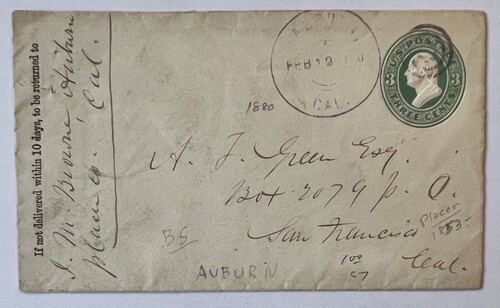 If not delivered within 10 days, to be returned to
J. M. Browne Auburn
Placer Co. Cal.
FEB 12
CAL.
U.S. POSTAGE
3 3
THREE CENTS
1880
A. J. Green Esq.
Box 2079 P. O.
San Francisco
Cal.
Placer
BS
AUBURN